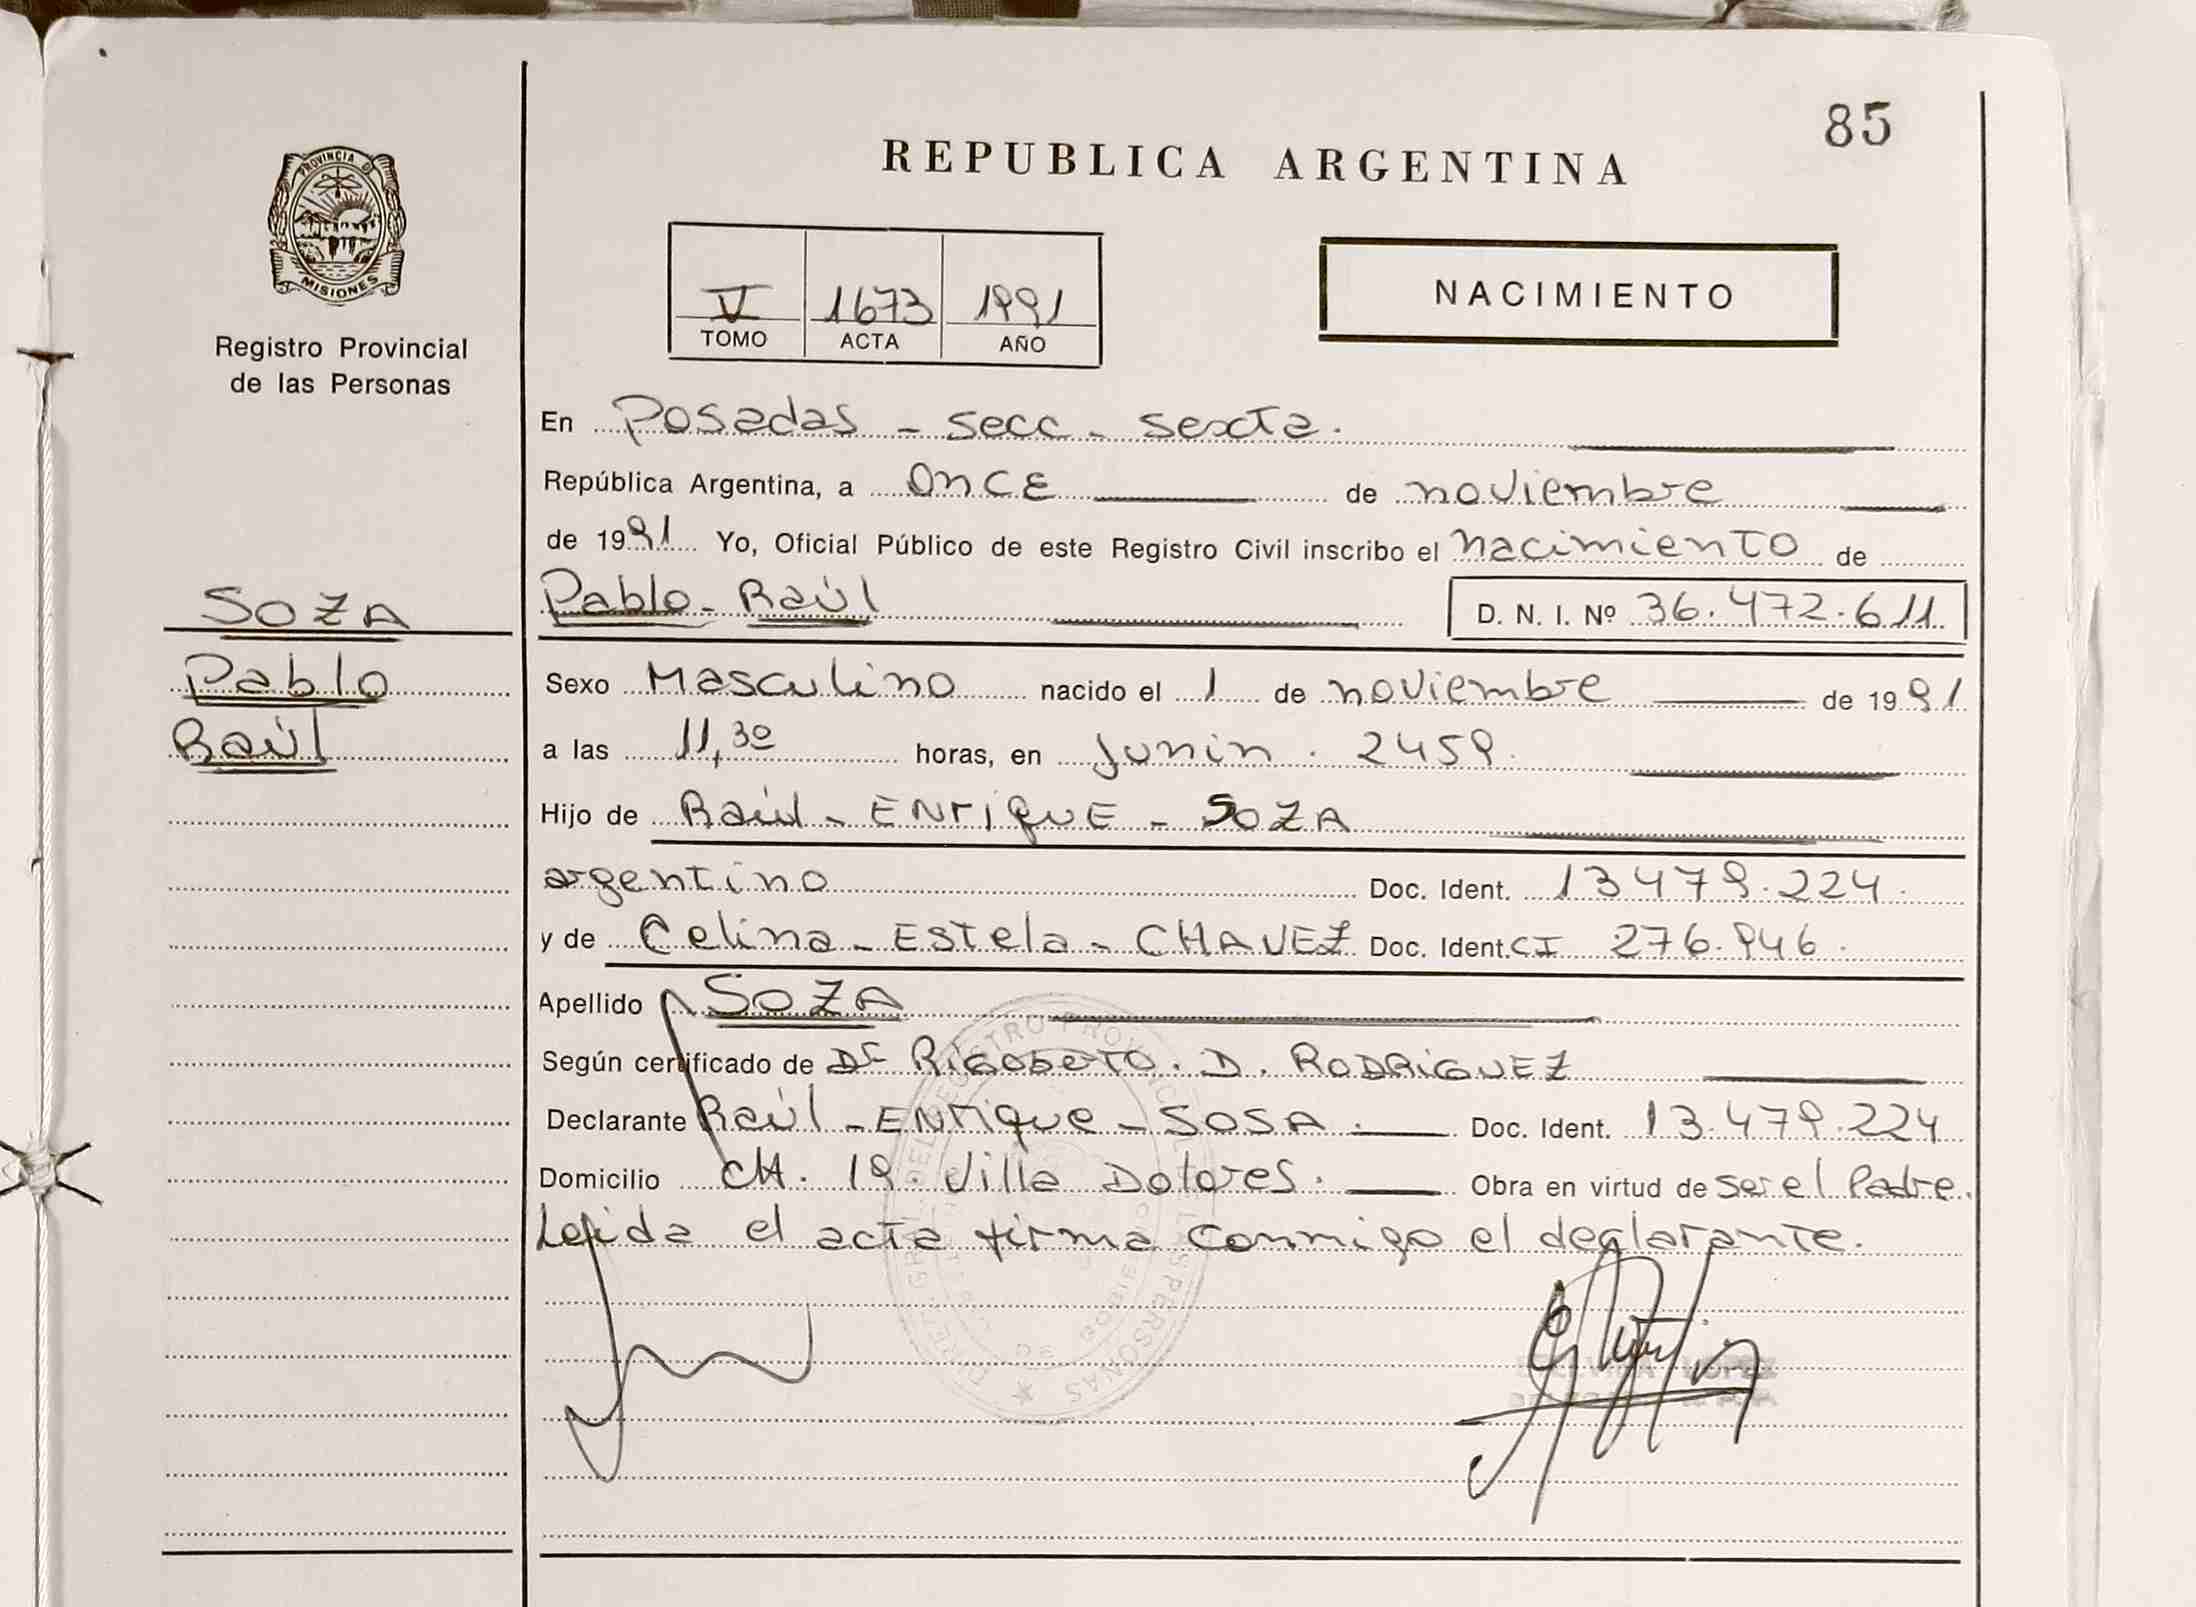 85
REPUBLICA ARGENTINA
PROVINCIA D
MISIONES
Registro Provincial
de las Personas
V 1673 1991
TOMO ACTA AÑO
NACIMIENTO
En Posadas - secc - sexta.
República Argentina, a Once de noviembre
de 1991 Yo, Oficial Público de este Registro Civil inscribo el nacimiento de
SOZA
Pablo
Raúl
Pablo - Raúl D. N. I. Nº 36.472.611
Sexo Masculino nacido el 1 de noviembre de 1991
a las 11,30 horas, en Junin . 2459.
Hijo de Raúl - Enrique - SOZA
argentino Doc. Ident. 13479.224.
y de Celina - Estela - CHAVEZ Doc. Ident. CI 276.946.
Apellido SOZA
Según certificado de Dr Rigoberto . D . RODRIGUEZ
Declarante Raúl - Enrique - SOSA . Doc. Ident. 13.479.224
Domicilio CH. 19. Villa Dolores. Obra en virtud de ser el Padre.
Leida el acta firma conmigo el declarante.
REGISTRO PROVINCIAL PERSONAS